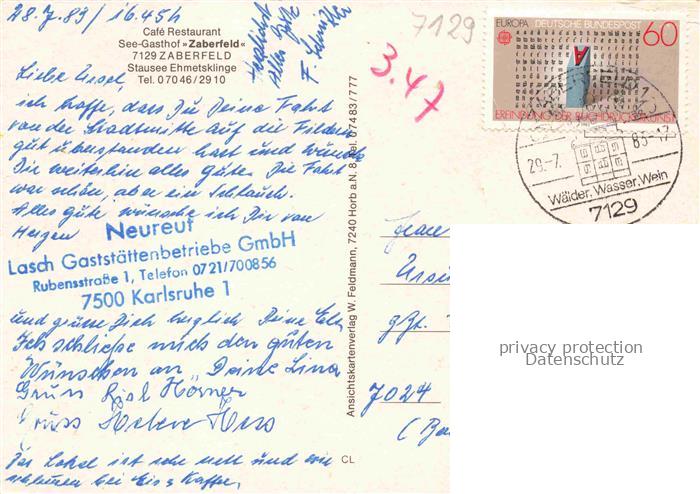 28.7.83 / 16.45h
Café Restaurant
See-Gasthof »Zaberfeld«
7129 ZABERFELD
Stausee Ehmetsklinge
Tel. 07046/2910
7129
3.47
EUROPA DEUTSCHE BUNDESPOST 60
ERFINDUNG DER BUCHDRUCKKUNST
29.-7. 83-17
Wälder, Wasser, Wein
7129
Liebe Ursel,
ich hoffe, dass Du Deine Fahrt
von der Stadtmitte auf die Fildern
gut überstanden hast und wünsche
Dir weiterhin alles gute. Die Fahrt
war schön, aber ein Schlauch.
Alles gute wünsche ich Dir von
Herzen
Neureut
Lasch Gaststättenbetriebe GmbH
Rubensstraße 1, Telefon 0721/700856
7500 Karlsruhe 1
und grüsse Dich herzlich Deine
Ich schließe mich den guten
Wünschen an, Deine Lina
Gruss Hörner
Gruss Helene Hess
Das Lokal ist sehr nett und wir
bei Eis & Kaffee,
Ansichtskartenverlag W. Feldmann, 7240 Horb a.N. 8, Tel. 07483/777
CL
Frau
7024
privacy protection
Datenschutz